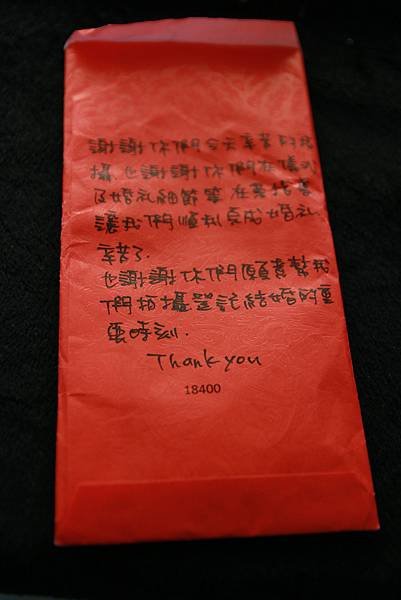 謝謝你們今天辛苦的拍
攝,也謝謝你們在儀式
及婚禮細節等在旁指導
讓我們順利完成婚禮,
辛苦了.
也謝謝你們願意幫我
們拍攝登記結婚的重
要時刻.
Thank you
18400